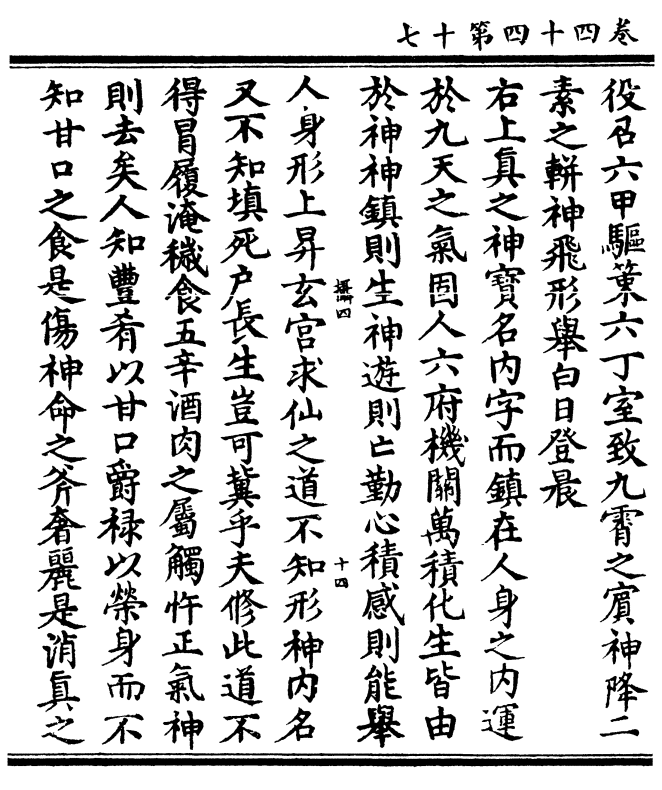 卷四十四第十七
役召六甲驅策六丁室致九霄之賓神降二
素之軿神飛形舉白日登晨
右上真之神寳名內字而鎮在人身之內運
於九天之氣固人六府機關萬積化生皆由
於神神鎮則生神遊則亡勤心積感則能舉
攝四 十四
人身形上昇玄宮求仙之道不知形神內名
又不知填死户長生豈可冀乎夫修此道不
得冐履淹穢食五辛酒肉之屬觸忤正氣神
則去矣人知豐肴以甘口爵禄以榮身而不
知甘口之食是傷神命之斧奢麗是消真之